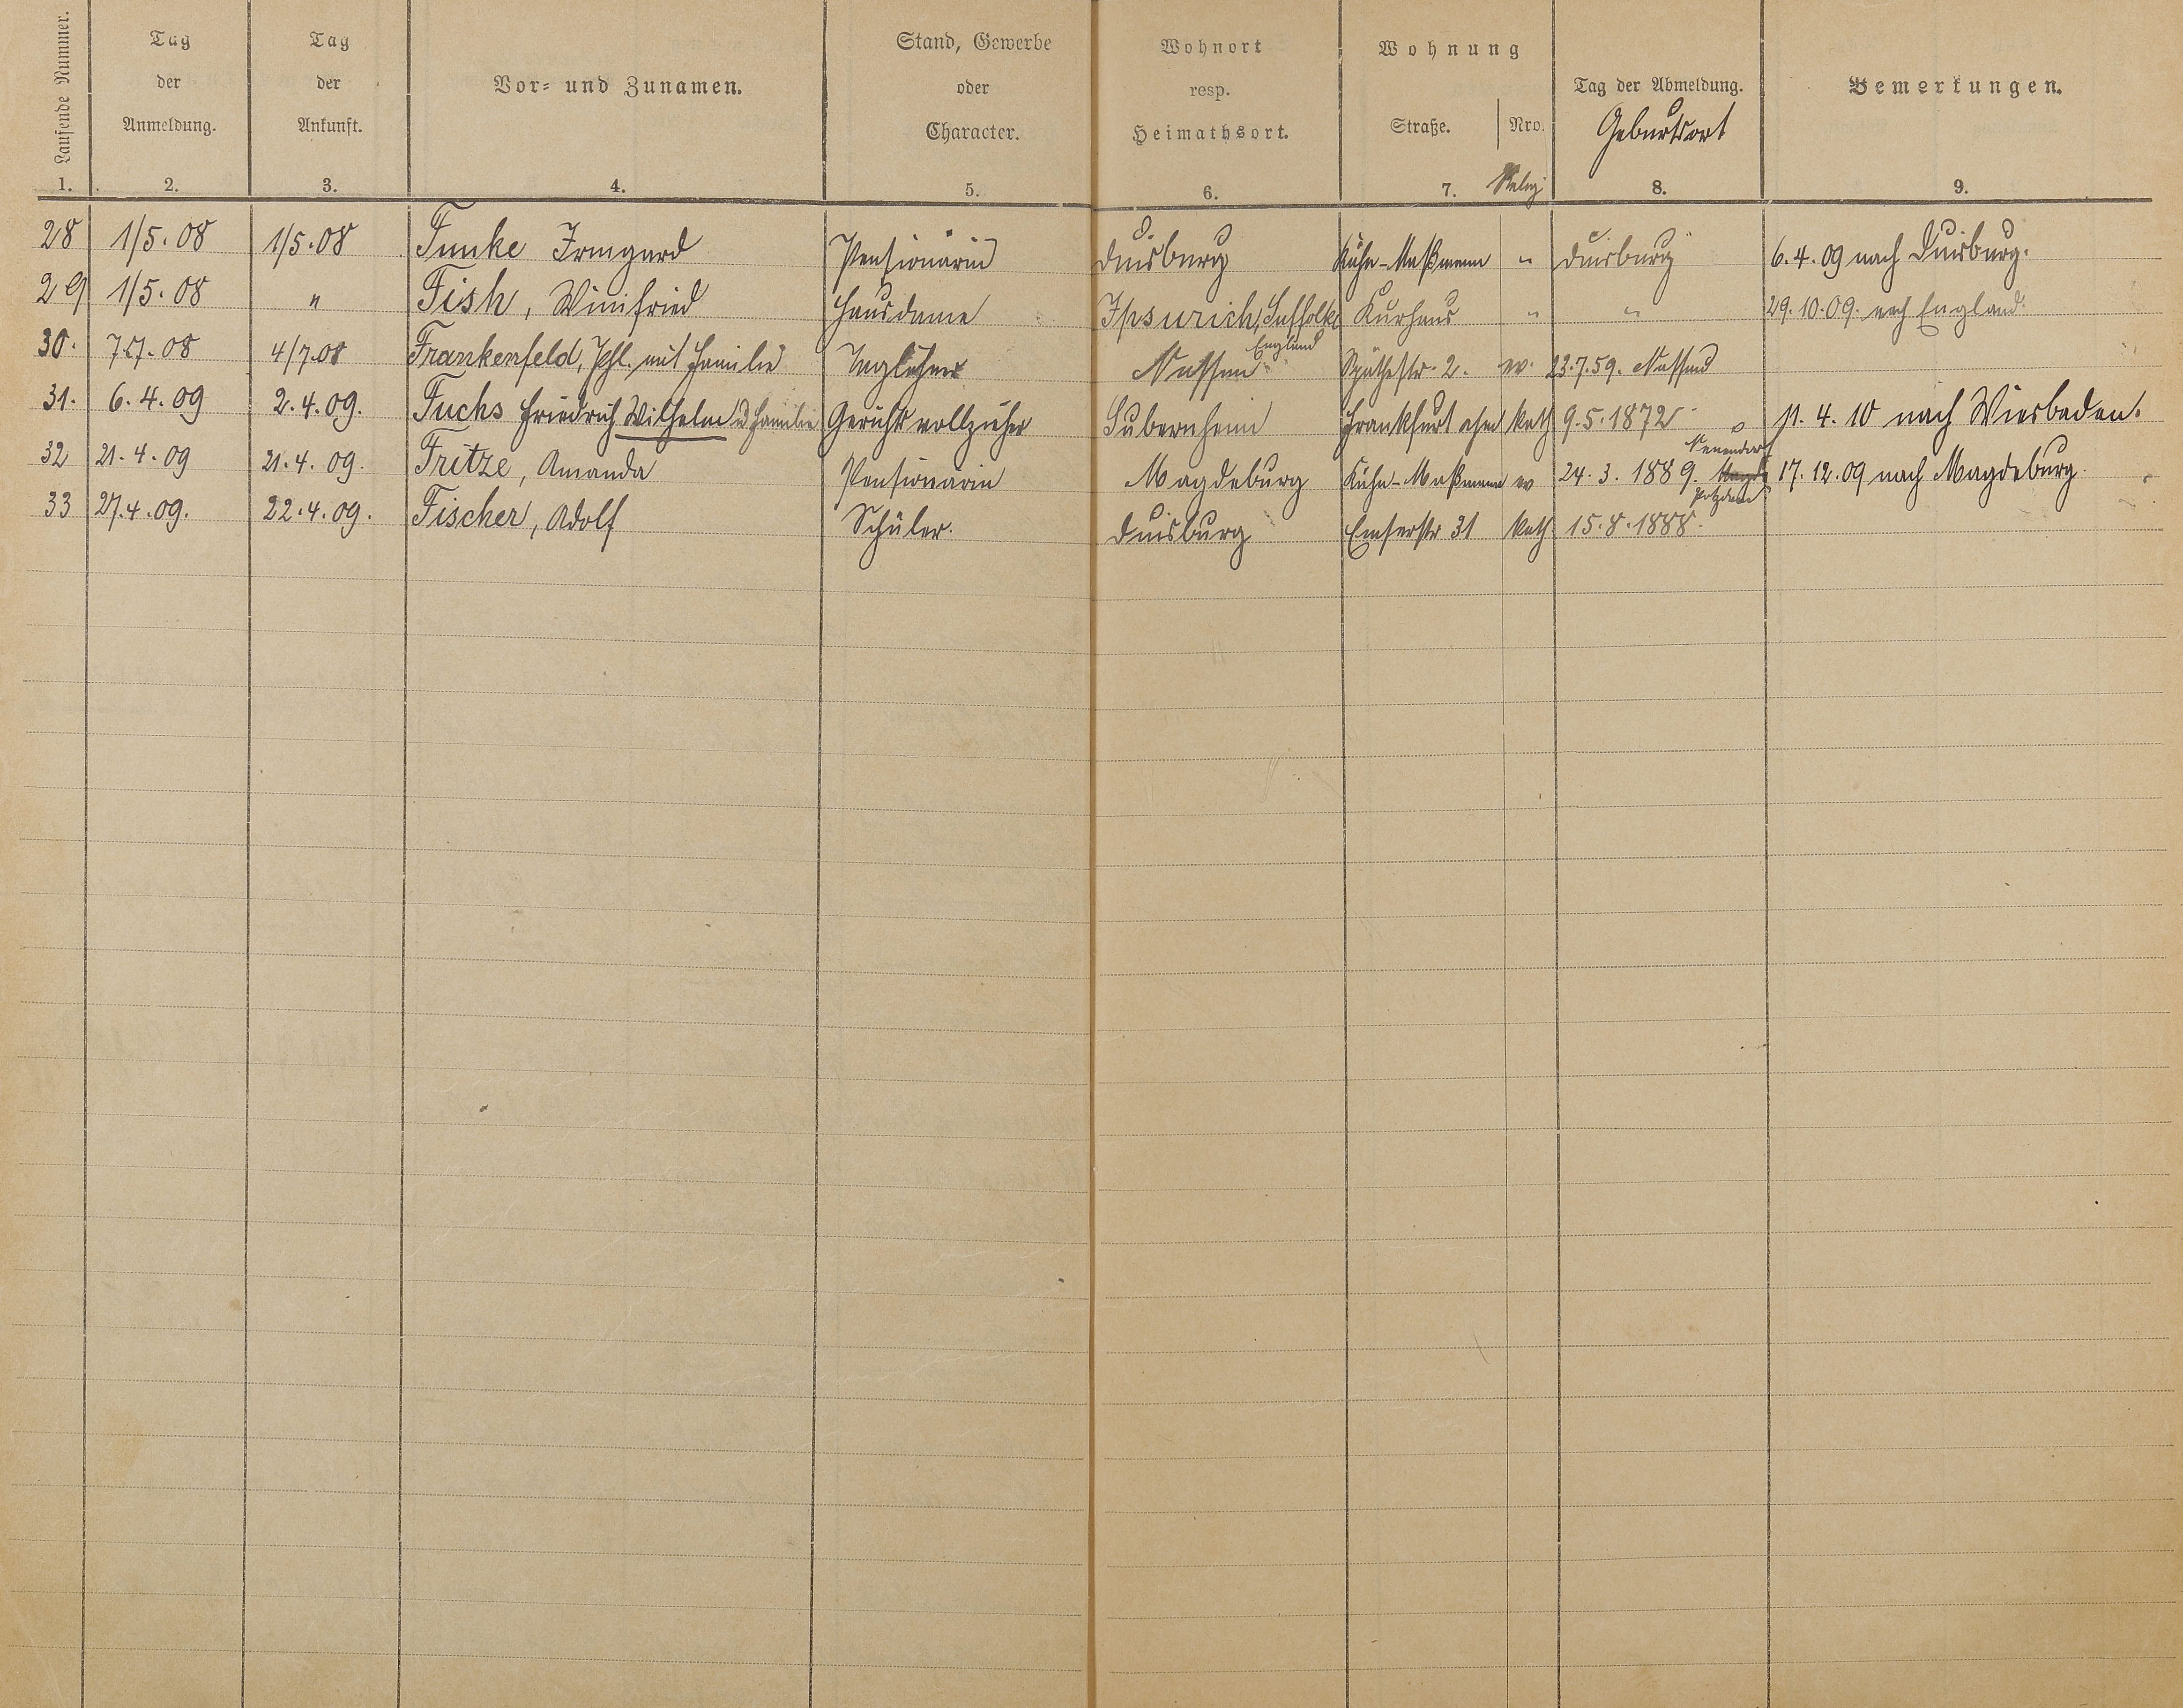 Laufende Nummer. Tag der Anmeldung. Tag der Ankunft. Vor- und Zunamen. Stand, Gewerbe oder Character. Wohnort resp. Heimathsort. Wohnung Straße. Nro. Tag der Abmeldung. Bemerkungen.
Relig Geburtsort
1. 2. 3. 4. 5. 6. 7. 8. 9.
28 1/5.08 1/5.08 Funke Irmgard Pensionärin Duisburg Kühn-Maßmann " Duisburg 6.4.09 nach Duisburg.
29 1/5.08 " Fish, Winifried Hausdame Ipsurich, Suffolke England Kurhaus " " 29.10.09. nach England.
30. 7.7.08 4/7.08 Frankenfeld, Phl. mit Familie Taglöhner Nassau Späthestr. 2. ev. 23.7.59. Nassau
31. 6.4.09 2.4.09. Fuchs Friedrich Wilhelm u Familie Gerichtsvollzieher Frankfurt kath 9.5.1872 11.4.10 nach Wiesbaden.
32 21.4.09 21.4.09. Fritze, Amanda Pensionärin Magdeburg Kühn-Maßmann ev 24.3.1889. Neuendorf Potzdam 17.12.09 nach Magdeburg.
33 27.4.09. 22.4.09. Fischer, Adolf Schüler. Duisburg Emserstr 31 kath 15.8.1888.